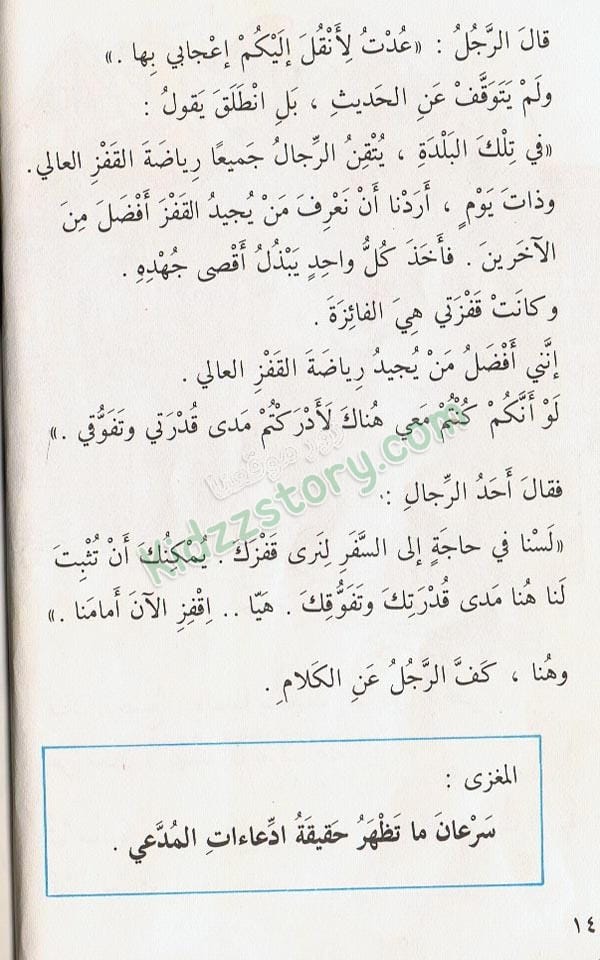 قالَ الرَّجُلُ : «عُدْتُ لِأَنْقُلَ إِلَيْكُمْ إعْجابي بِها .»
ولَمْ يَتَوَقَّفْ عَنِ الحَديثِ ، بَلِ انْطَلَقَ يَقولُ :
«في تِلْكَ البَلْدَةِ ، يُتْقِنُ الرِّجالُ جَميعًا رِياضَةَ القَفْزِ العالي.
وذاتَ يَوْمٍ ، أَرَدْنا أَنْ نَعْرِفَ مَنْ يُجيدُ القَفْزَ أَفْضَلَ مِنَ
الآخَرينَ . فأَخَذَ كُلُّ واحِدٍ يَبْذُلُ أَقْصى جُهْدِهِ .
وكانَتْ قَفْزَتي هِيَ الفائِزَةَ .
إنَّني أَفْضَلُ مَنْ يُجيدُ رِياضَةَ القَفْزِ العالي .
لَوْ أَنَّكُمْ كُنْتُمْ مَعي هُناكَ لَأَدْرَكْتُمْ مَدى قُدْرَتي وتَفَوُّقي .»
زوروا موقعنا
Kidzzstory.com
فقالَ أَحَدُ الرِّجالِ :
«لَسْنا في حاجَةٍ إلى السَّفَرِ لِنَرى قَفْزَكَ . يُمْكِنُكَ أَنْ تُثْبِتَ
لَنا هُنا مَدى قُدْرَتِكَ وتَفَوُّقِكَ . هَيّا .. اِقْفِزِ الآنَ أَمامَنا .»
وهُنا ، كَفَّ الرَّجُلُ عَنِ الكَلامِ .
المَغزى :
سَرْعانَ ما تَظْهَرُ حَقيقَةُ ادِّعاءاتِ المُدَّعي .
١٤